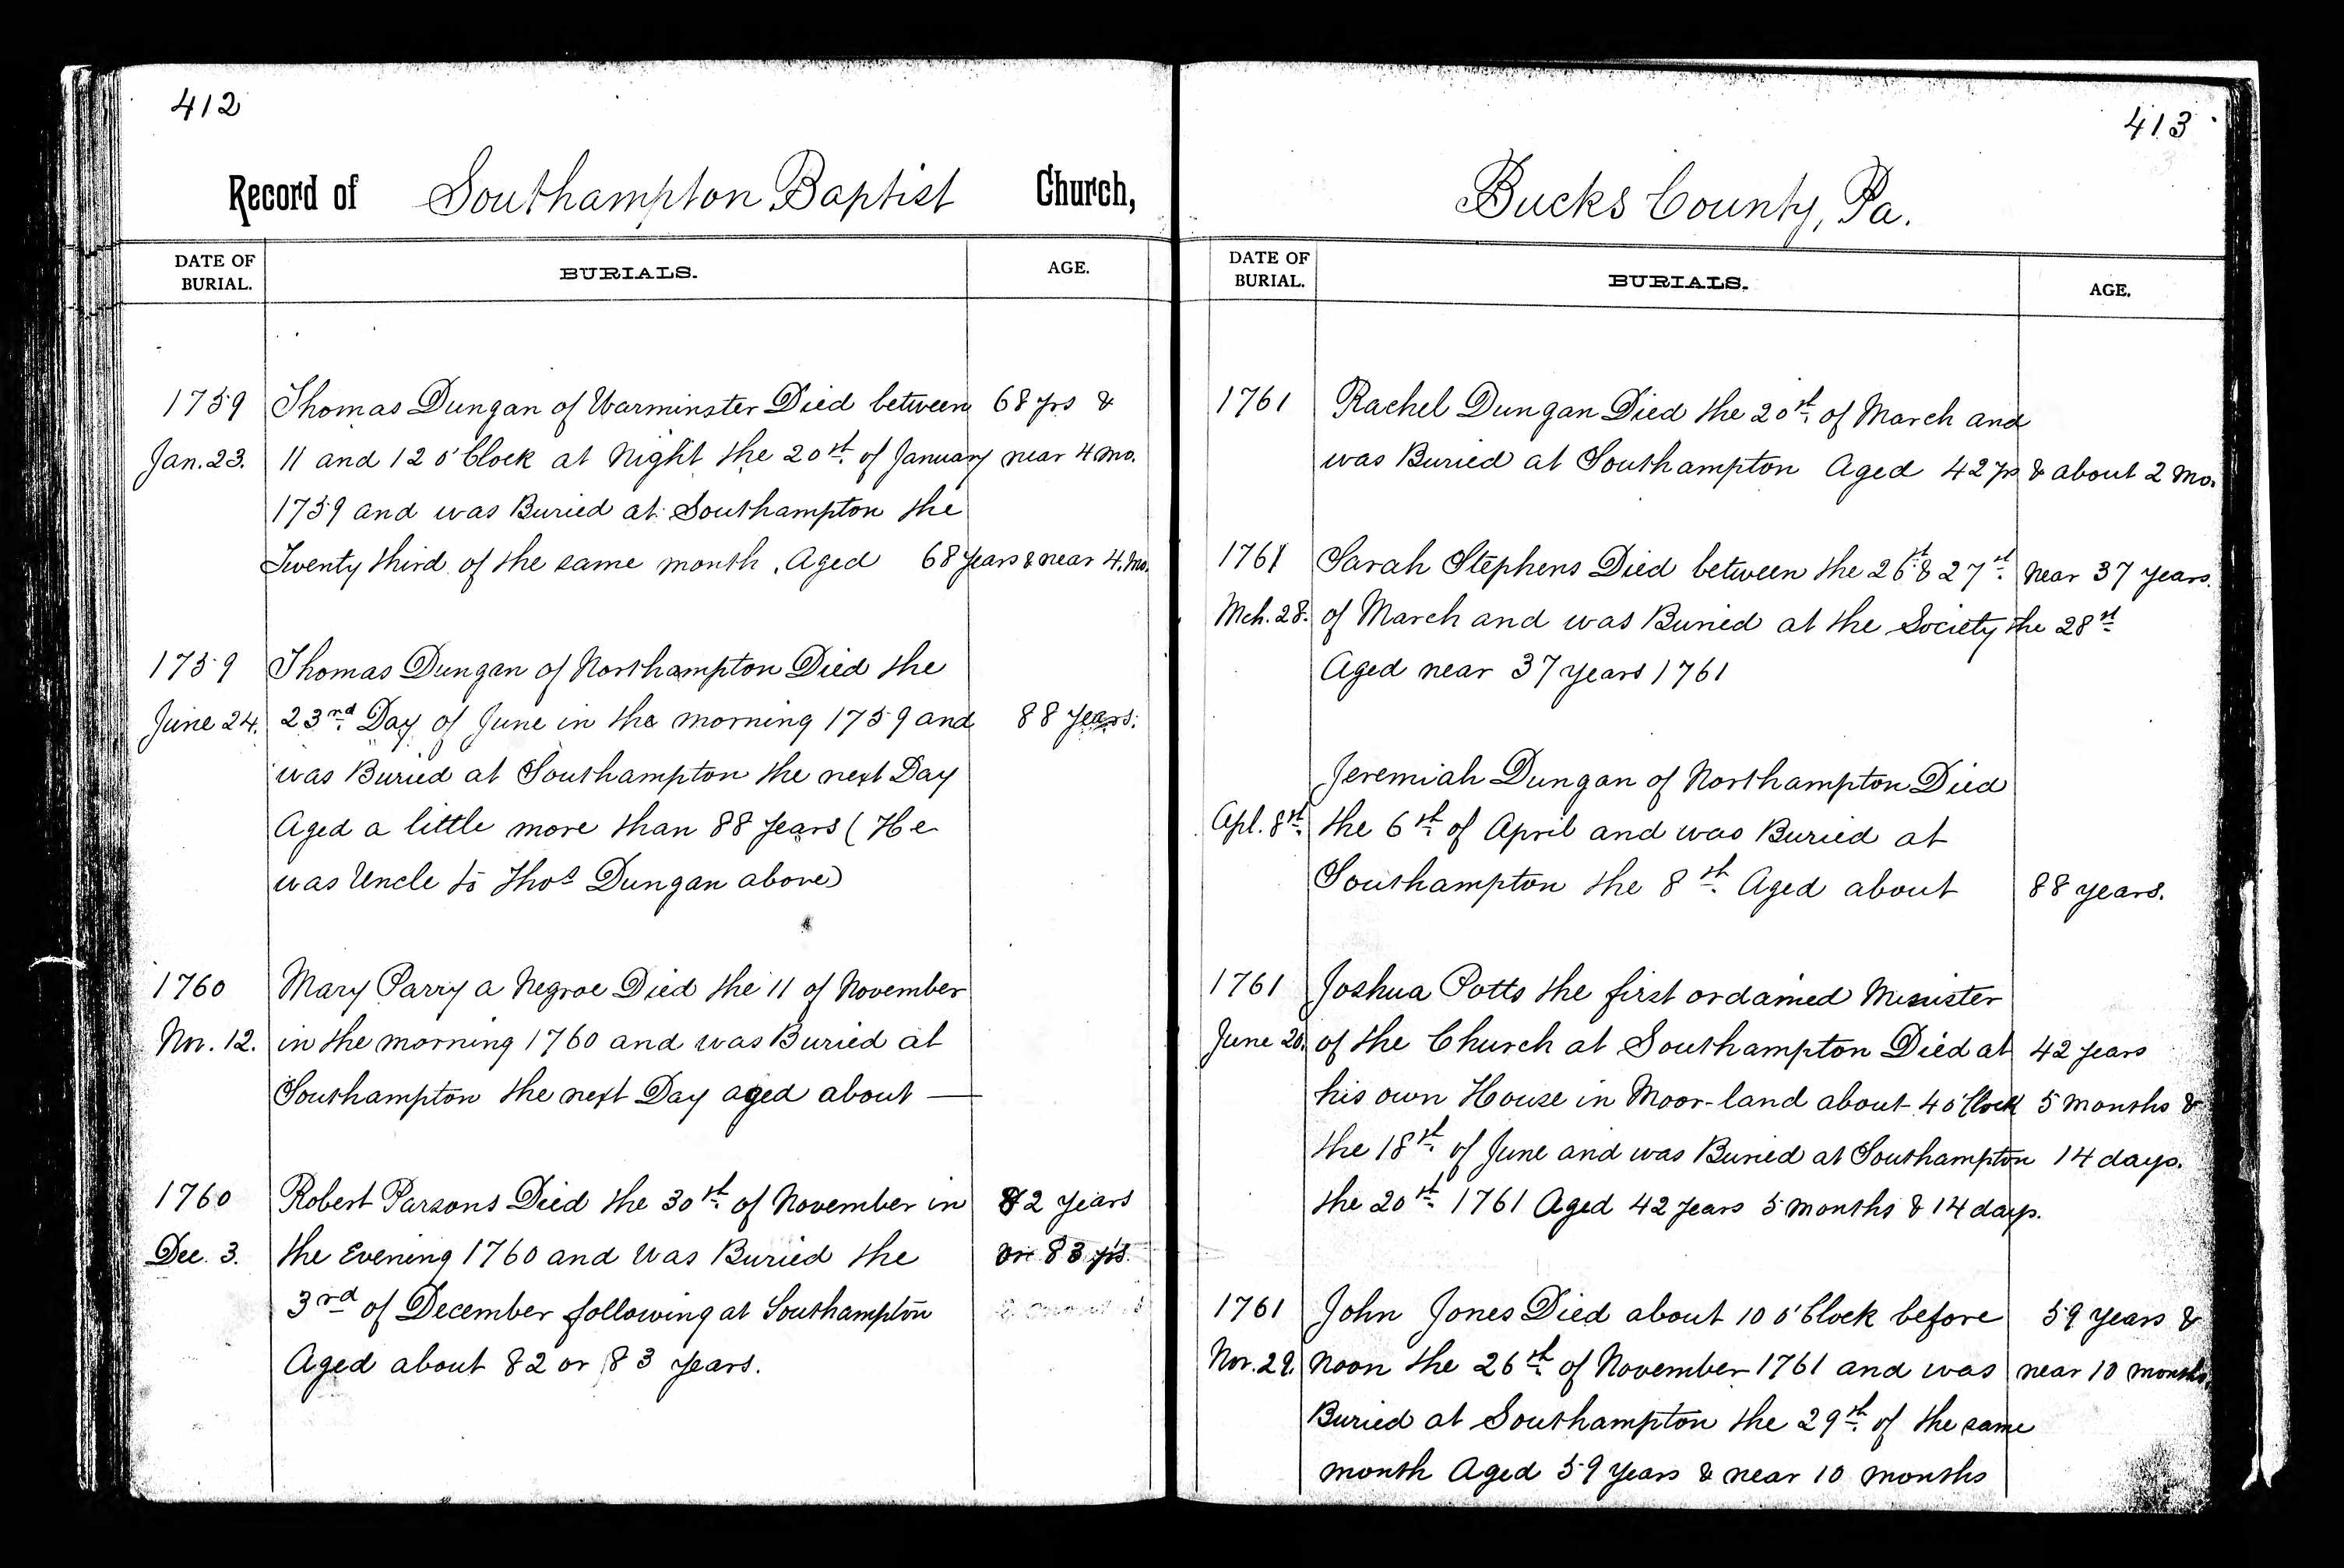 412
Record of Southampton Baptist Church,
DATE OF BURIAL. BURIALS. AGE.
1759 Thomas Dungan of Warminster Died between 68 yrs &
Jan. 23. 11 and 12 o'Clock at Night the 20th of January near 4 mo.
1759 and was Buried at Southampton the
Twenty third of the same month. Aged 68 years & near 4. Mo.
1759 Thomas Dungan of Northampton Died the
June 24. 23rd Day of June in the morning 1759 and 88 Years.
was Buried at Southampton the next Day
Aged a little more than 88 years (He
was Uncle to Thos Dungan above)
1760 Mary Parry a Negroe Died the 11 of November
Nov. 12. in the morning 1760 and was Buried at
Southampton the next Day aged about —
1760 Robert Parsons Died the 30th of November in 82 years
Dec. 3. the Evening 1760 and was Buried the or 83 yrs.
3rd of December following at Southampton
Aged about 82 or 83 years.
413
Bucks County, Pa.
DATE OF BURIAL. BURIALS. AGE.
1761 Rachel Dungan Died the 20th of March and
was Buried at Southampton Aged 42 yrs & about 2 Mo.
1761 Sarah Stephens Died between the 26th & 27th near 37 years.
Mch. 28. of March and was Buried at the Society the 28th
Aged near 37 years 1761
Jeremiah Dungan of Northampton Died
Apl. 8th. the 6th of April and was Buried at
Southampton the 8th Aged about 88 years.
1761 Joshua Potts the first ordained Minister
June 20. of the Church at Southampton Died at 42 years
his own House in Moor-land about 4 o'Clock 5 months &
the 18th of June and was Buried at Southampton 14 days.
the 20th 1761 Aged 42 years 5 months & 14 days.
1761 John Jones Died about 10 o'Clock before 59 years &
Nov. 29. Noon the 26th of November 1761 and was near 10 months.
Buried at Southampton the 29th of the same
month Aged 59 years & near 10 months